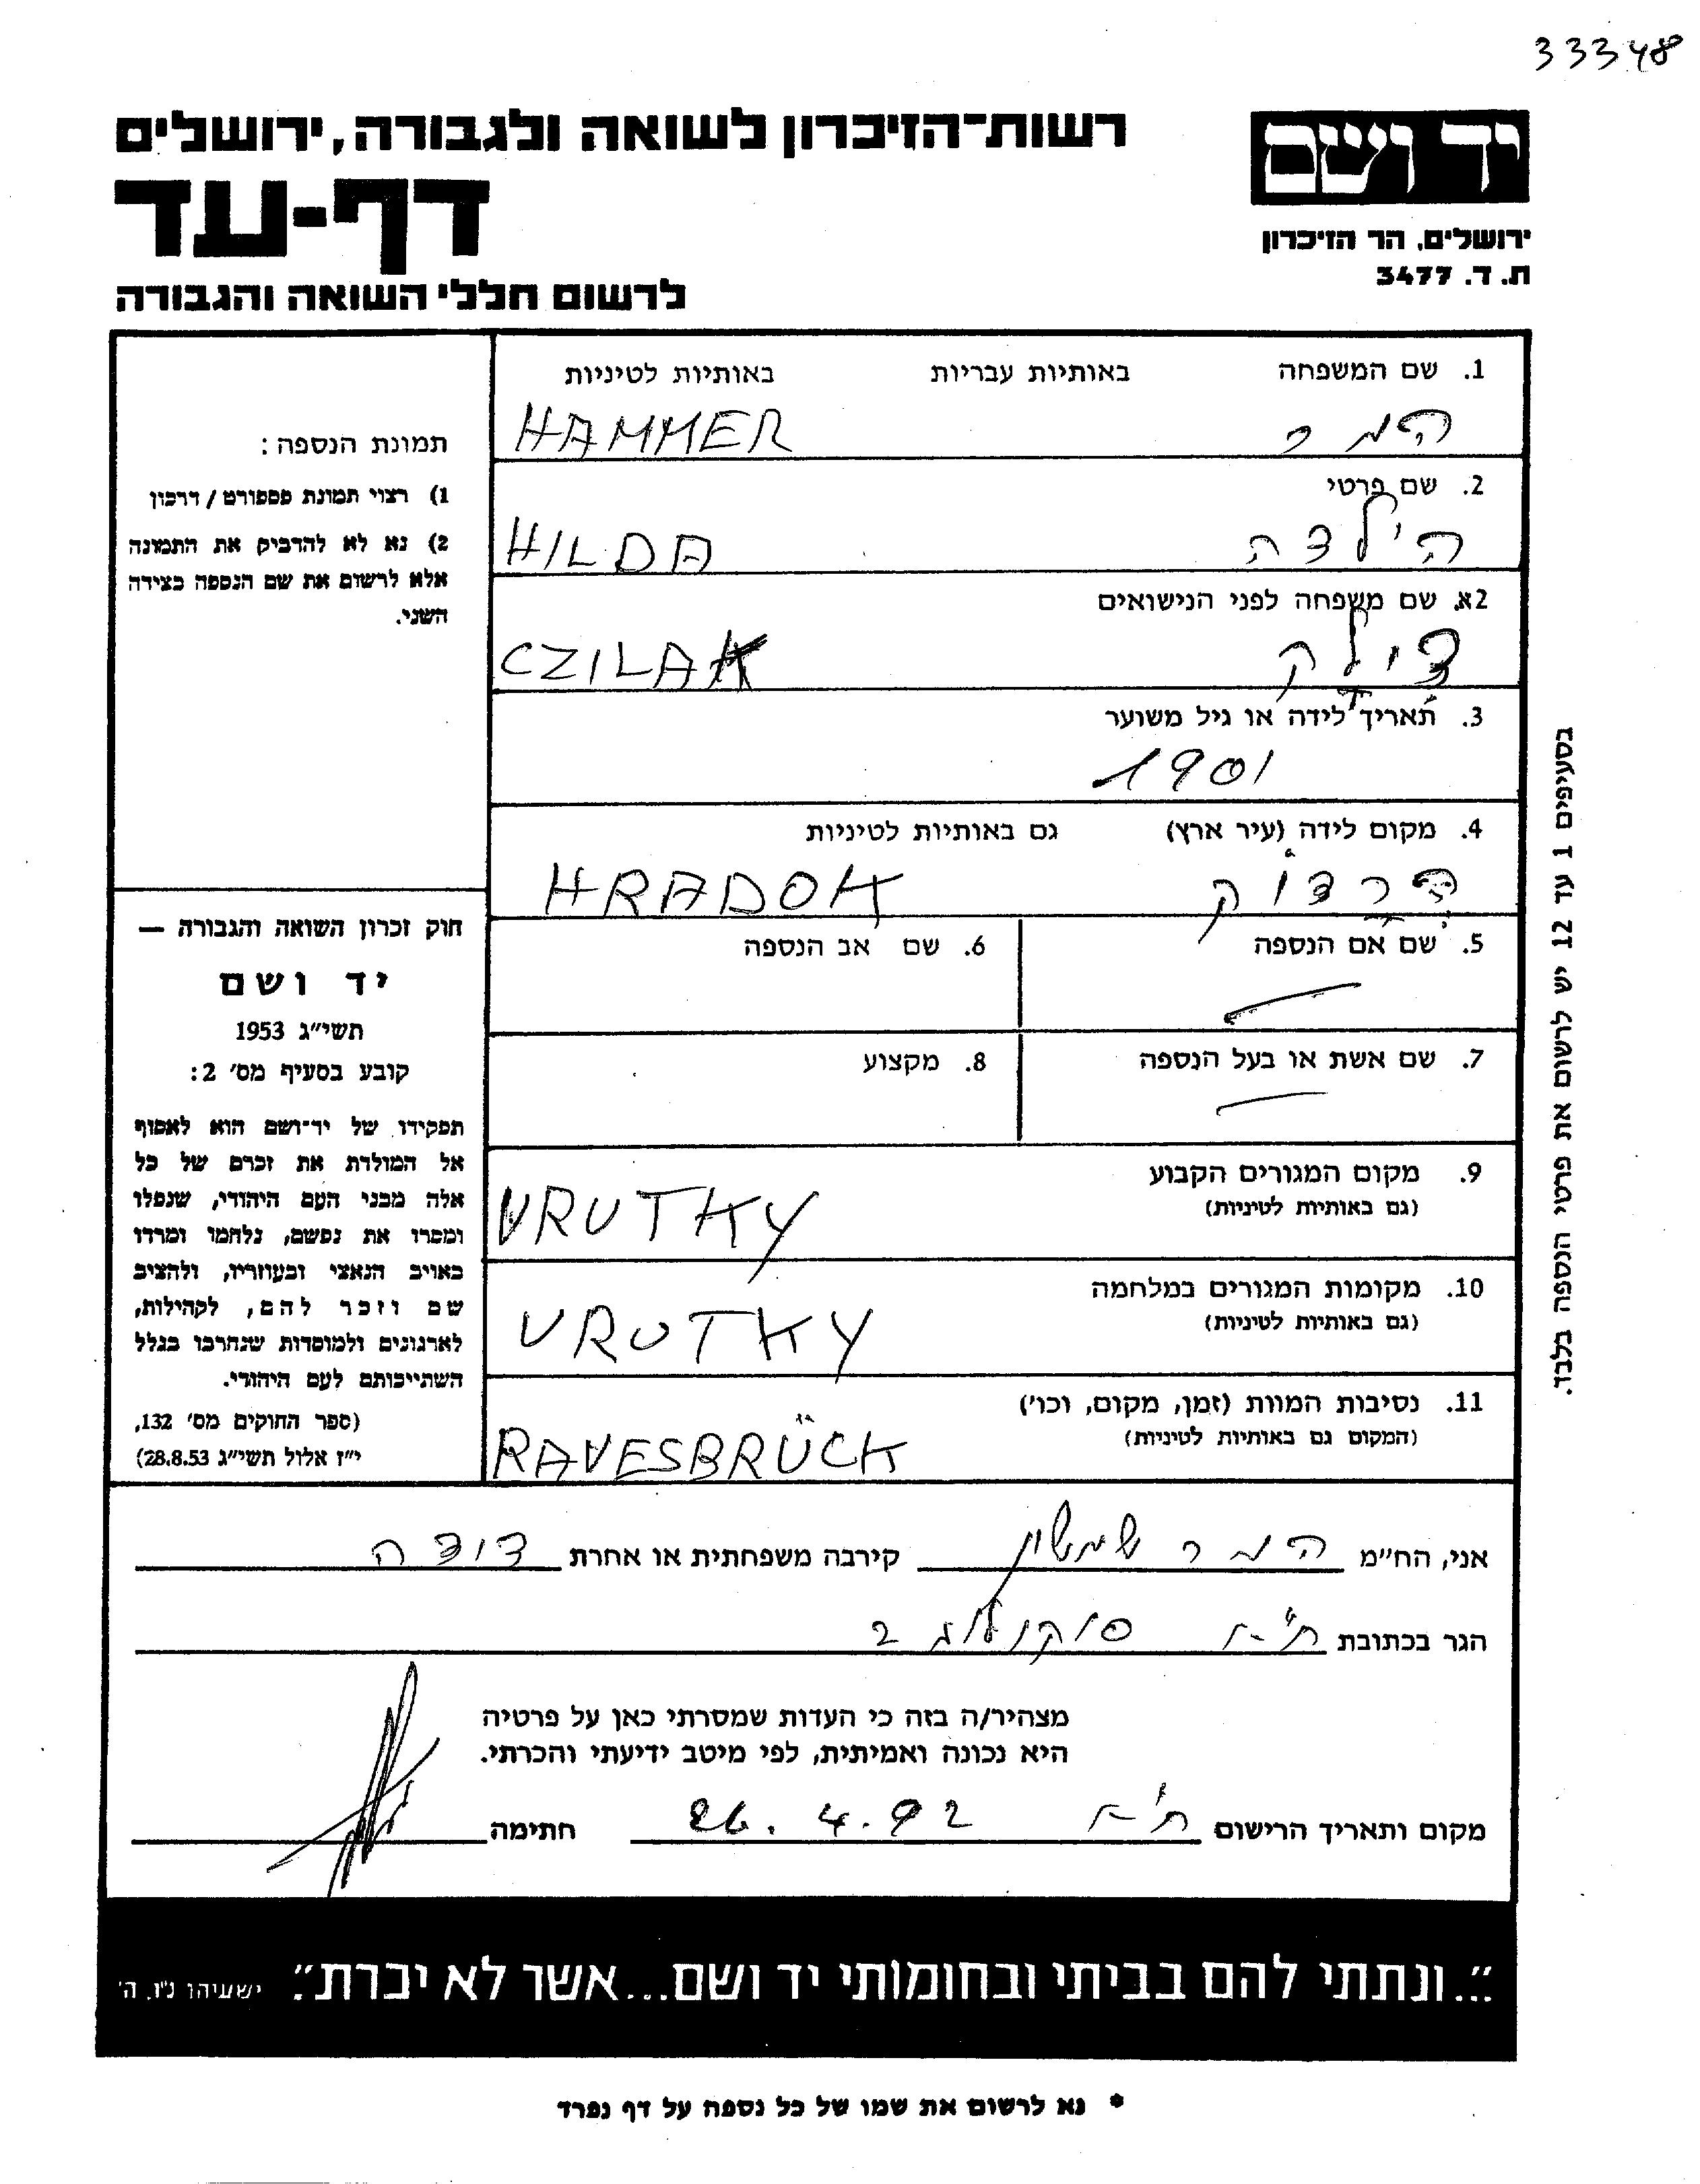 33348
יד ושם
ירושלים, הר הזיכרון
ת. ד. 3477
רשות-הזיכרון לשואה ולגבורה, ירושלים
דף-עד
לרשום חללי השואה והגבורה
1. שם המשפחה באותיות עבריות באותיות לטיניות
המר HAMMER
2. שם פרטי
הילדה HILDA
2א. שם משפחה לפני הנישואים
צילק CZILAK
3. תאריך לידה או גיל משוער
1901
4. מקום לידה (עיר ארץ) גם באותיות לטיניות
הרדוק HRADOK
5. שם אם הנספה 6. שם אב הנספה
7. שם אשת או בעל הנספה 8. מקצוע
9. מקום המגורים הקבוע
(גם באותיות לטיניות)
VRUTKY
10. מקומות המגורים במלחמה
(גם באותיות לטיניות)
VRUTKY
11. נסיבות המוות (זמן, מקום, וכו')
(המקום גם באותיות לטיניות)
RAVESBRÜCK
תמונת הנספה:
1) רצוי תמונת פספורט / דרכון
2) נא לא להדביק את התמונה
אלא לרשום את שם הנספה בצידה
השני.
חוק זכרון השואה והגבורה —
יד ושם
תשי"ג 1953
קובע בסעיף מס' 2:
תפקידו של יד-ושם הוא לאסוף
אל המולדת את זכרם של כל
אלה מבני העם היהודי, שנפלו
ומסרו את נפשם, נלחמו ומרדו
באויב הנאצי ובעוזריו, ולהציב
שם וזכר להם, לקהילות,
לארגונים ולמוסדות שנחרבו בגלל
השתייכותם לעם היהודי.
(ספר החוקים מס' 132,
י"ז אלול תשי"ג 28.8.53)
בסעיפים 1 עד 12 יש לרשום את פרטי הנספה בלבד.
אני, הח"מ המר שמשון קירבה משפחתית או אחרת דודה
הגר בכתובת ת"א סוקולוב 2
מצהיר/ה בזה כי העדות שמסרתי כאן על פרטיה
היא נכונה ואמיתית, לפי מיטב ידיעתי והכרתי.
מקום ותאריך הרישום ת"א 26.4.92 חתימה
"...ונתתי להם בביתי ובחומותי יד ושם...אשר לא יכרת". ישעיהו נ"ו, ה'
* נא לרשום את שמו של כל נספה על דף נפרד